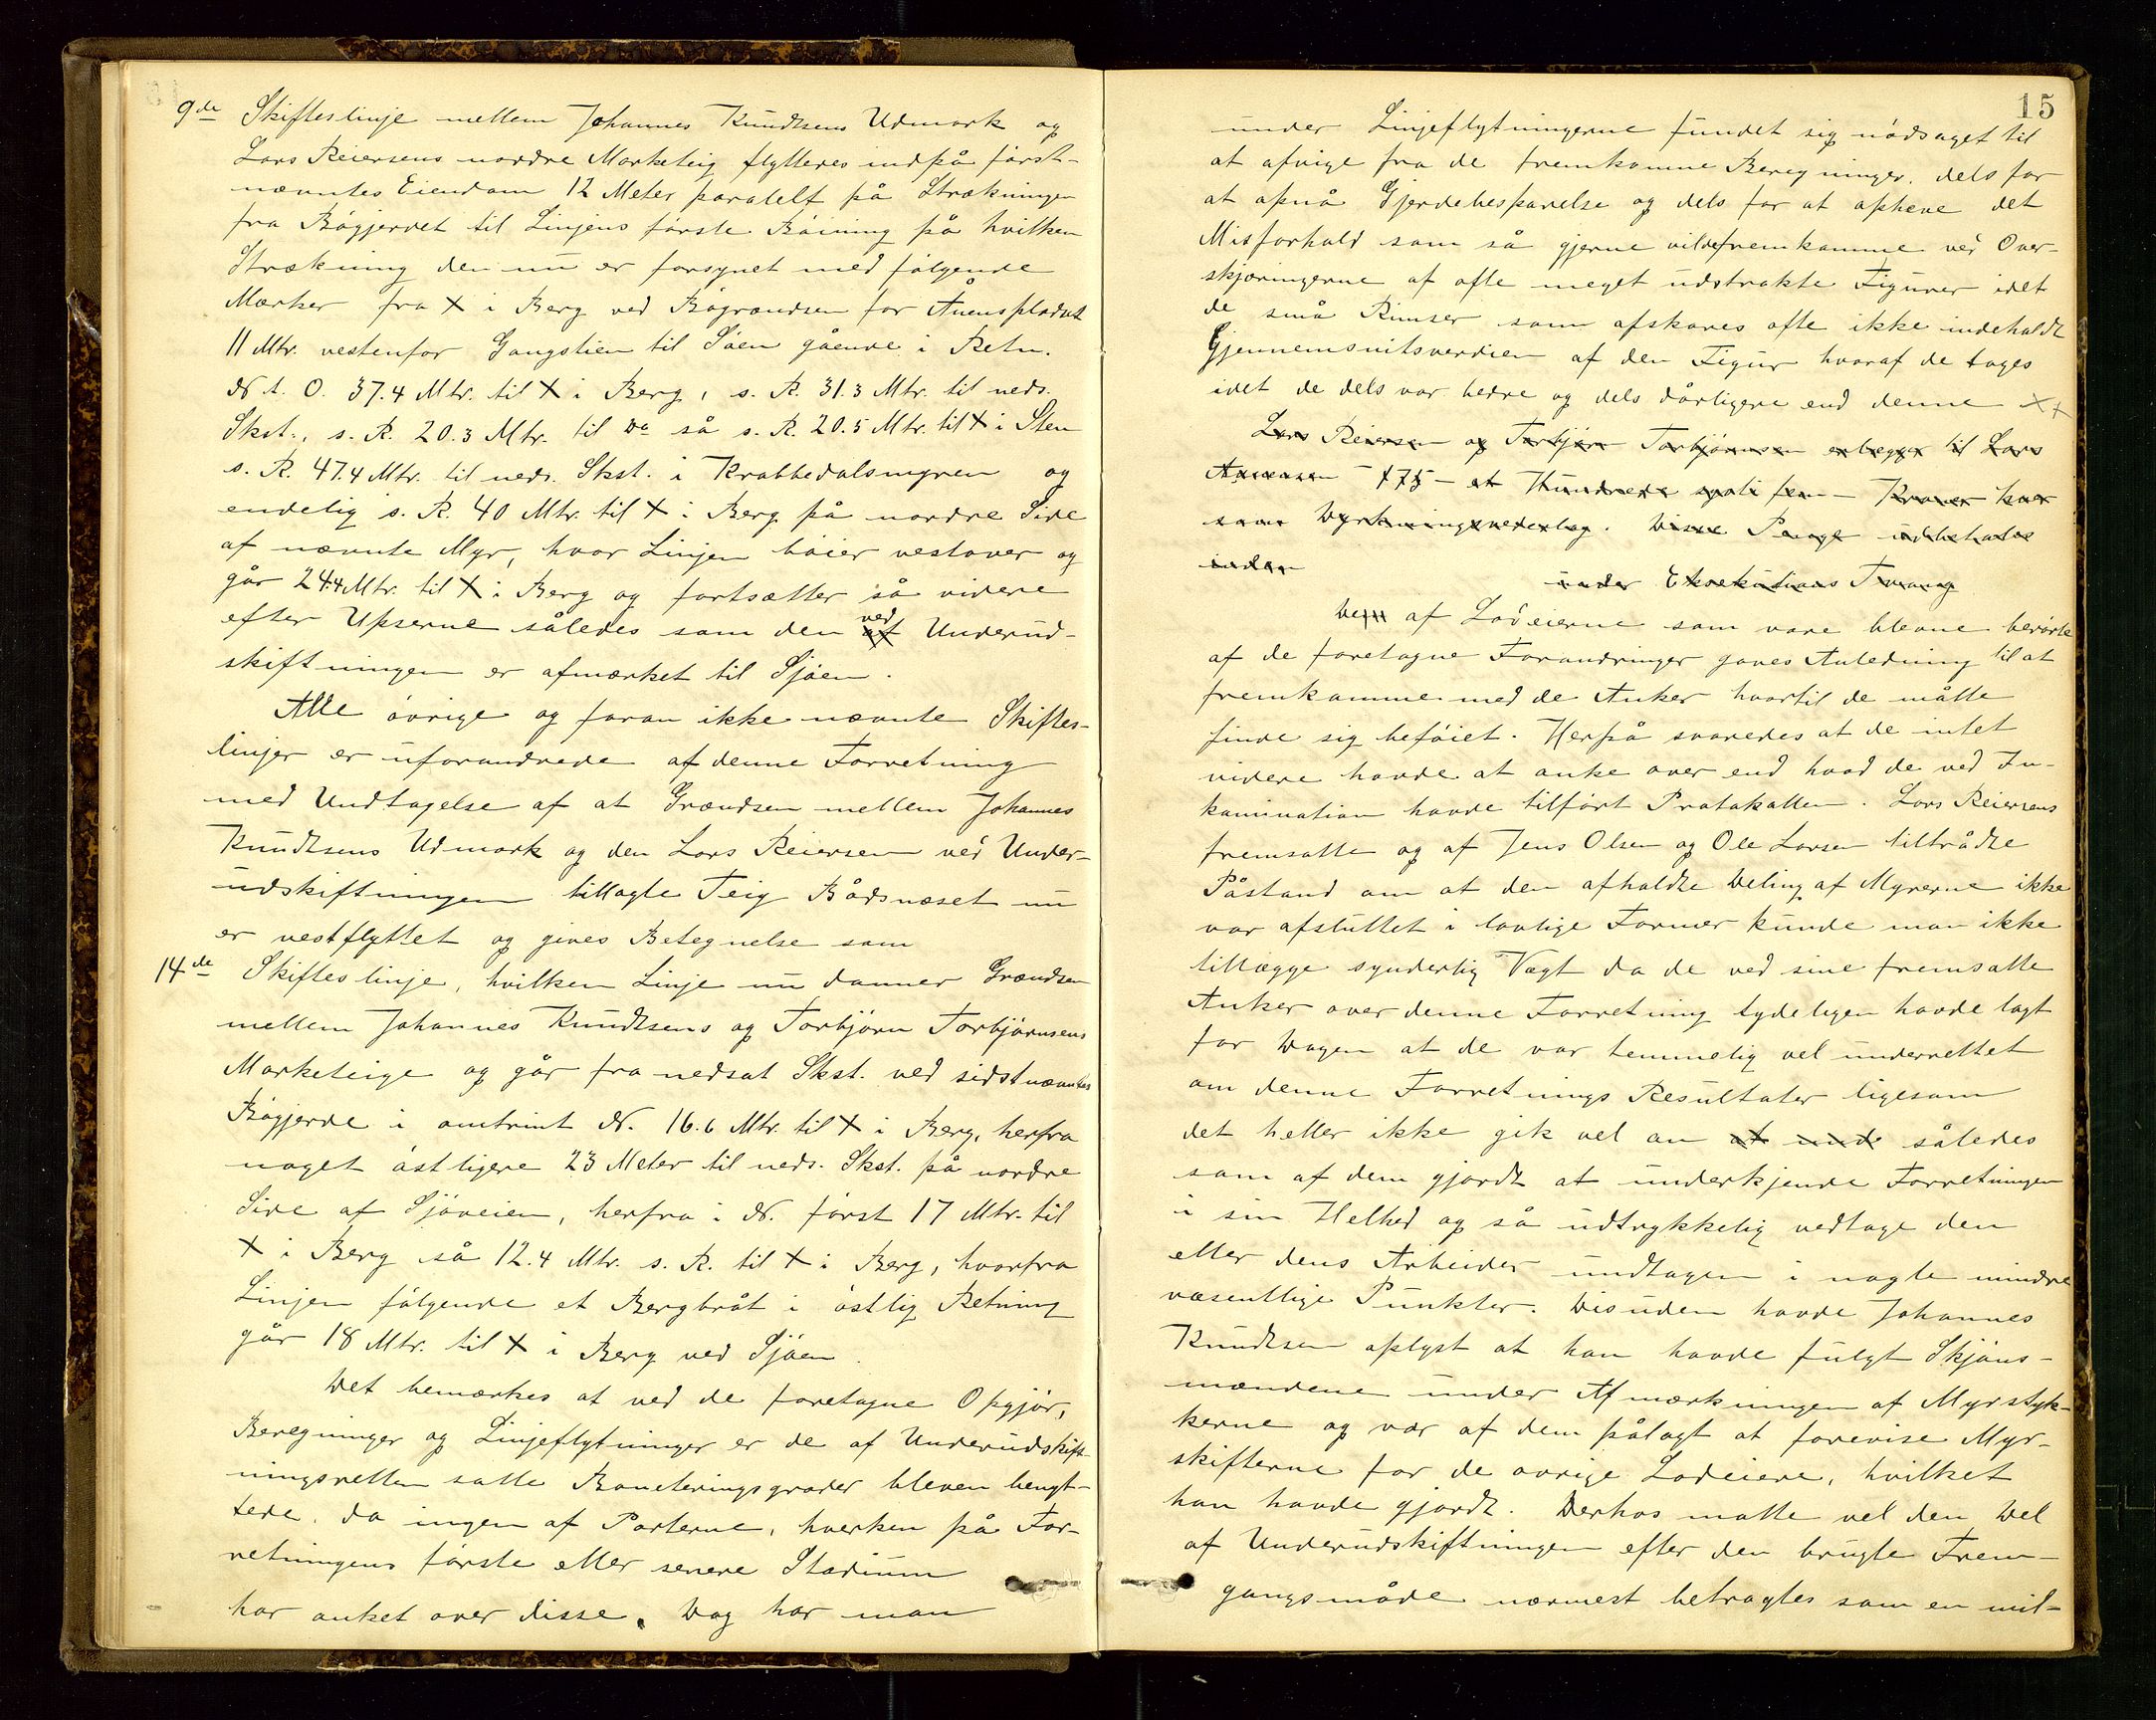 9de Skifteslinje mellem Johannes Knudtsens Udmark og
Lars Reiersens nordre Marketeig flyttedes indpå først-
nævntes Eiendom 12 Meter paralelt på Strækningen
fra Bøgjerdet til Linjens første Bøining på hvilken
Strækning den nu er forsynet med følgende
Mærker fra X i Berg ved Bøgrændsen for Åuenspladset
11 Mtr. vestenfor Gangstien til Søen gående i Retn.
N t. O. 37.4 Mtr. til X i Berg, s. R. 31.3 Mtr. til neds.
Skst., s. R. 20.3 Mtr. til Do så s. R. 20.5 Mtr. til X i Sten
s. R. 47.4 Mtr. til neds. Skst. i Krabbedalsmyren og
endelig s. R. 40 Mtr. til X i Berg på nordre Side
af nævnte Myr, hvor Linjen bøier vestover og
går 24.4 Mtr. til X i Berg og fortsætter så videre
efter Upserne således som den af ved Underud-
skiftningen er afmærket til Sjøen.
Alle øvrige og foran ikke nævnte Skiftes-
linjer er uforandrede af denne Forretning
med Undtagelse af at Grændsen mellem Johannes
Knudtsens Udmark og den Lars Reiersen ved Under-
udskiftningen tillagte Teig Bådsnæset nu
er vestflyttet og gives Betegnelse som
14de Skifteslinje, hvilken Linje nu danner Grændsen
mellem Johannes Knudtsens og Torbjørn Torbjørnsens
Marketeige og går fra nedsat Skst. ved sidstnævntes
Bøgjerde i omtrint N. 16.6 Mtr. til X i Berg, herfra
noget østligere 23 Meter til neds. Skst. på nordre
Side af Sjøveien, herfra i N. først 17 Mtr. til
X i Berg så 12.4 Mtr. s. R. til X i Berg, hvorfra
Linjen følgende et Bergbråt i østlig Retning
går 18 Mtr. til X i Berg ved Sjøen.
Det bemærkes at ved de foretagne Opgjør,
Beregninger og Linjeflytninger er de af Underudskift-
ningsretten satte Boneteringsgrader bleven benyt-
tede, da ingen af Parterne, hverken på For-
retningens første eller senere Stadium
har anket over disse. Dog har man
15
under Linjeflytningerne fundet sig nødsaget til
at afvige fra de fremkomne Beregninger, dels for
at opnå Gjerdebesparelse og dels for at ophæve det
Misforhold som så gjerne vilde fremkomme ved Over-
skjæringerne af ofte meget udstrakte Figurer idet
de små Rimser som afskares ofte ikke indeholdt
Gjennemsnitsverdien af den Figur hvoraf de toges
idet de dels var bedre og dels dårligere end denne XX
Lars Reiersen og Torbjørn Torbjørnsen erlægger til Lars
Asmussen 175 - et Hundrede sytti fem - Kroner hver
som Dyrkningsvederlag. Disse Penge udbetales
inden
under Eksekutions Tvang
Dem af Lodeierne som vare blevne berørte
af de foretagne Forandringer gaves Anledning til at
fremkomme med de Anker hvortil de måtte
finde sig beføiet. Herpå svaredes at de intet
videre havde at anke over end hvad de ved In-
kamination havde tilført Protokollen. Lars Reiersens
fremsatte og af Jens Olsen og Ole Larsen tiltrådte
Påstand om at den afholdte Deling af Myrerne ikke
var afsluttet i lovlige Former kunde man ikke
tillægge synderlig Vægt da de ved sine fremsatte
Anker over denne Forretning tydeligen havde lagt
for Dagen at de var temmelig vel underrettet
om denne Forretnings Resultater ligesom
det heller ikke gik vel an at und således
som af dem gjordt at underkjende Forretningen
i sin Helhed og så udtrykkelig vedtage den
eller dens Arbeider undtagen i nogle mindre
væsentlige Punkter. Desuden havde Johannes
Knudtsen oplyst at han havde fulgt Skjøns-
mændene under Afmærkningen af Myrstyk-
kerne og var af dem pålagt at forevise Myr-
skifterne for de øvrige Lodeiere, hvilket
han havde gjordt. Derhos måtte vel den Del
af Underudskiftningen efter den brugte Frem-
gangsmåde nærmest betragtes som en mil-